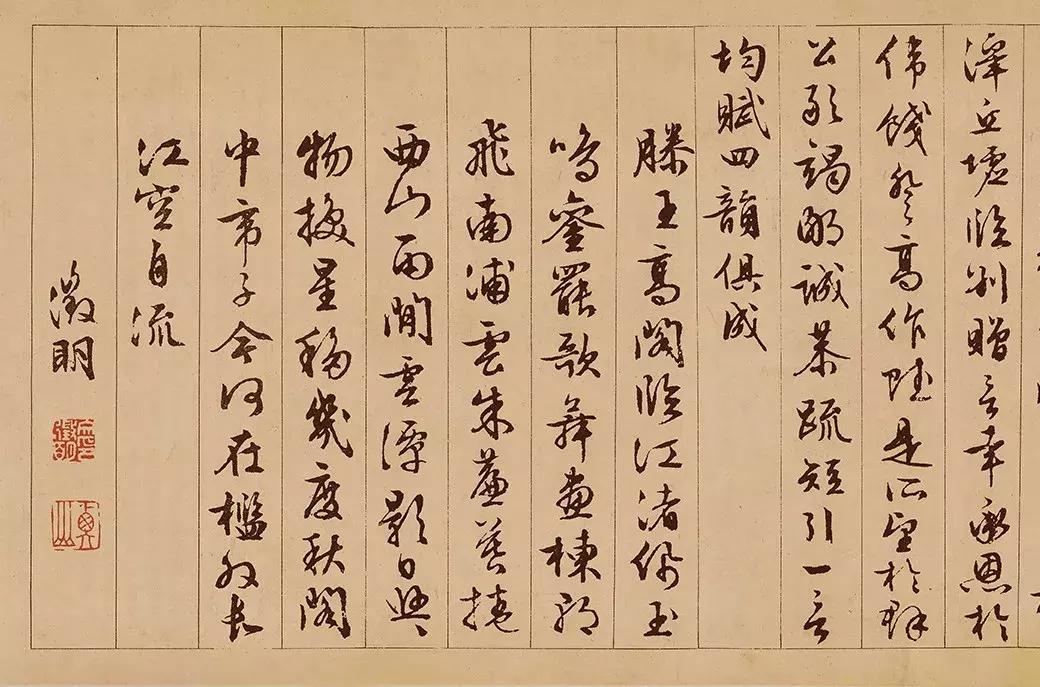 澤丘墟臨别贈言幸承恩於
偉餞登高作賦是所望於群
公敢竭鄙誠恭疏短引一言
均賦四韻俱成
滕王高閣臨江渚佩玉
鳴鑾罷歌舞畫棟朝
飛南浦雲朱簾暮捲
西山雨閒雲潭影日悠〻
物換星移幾度秋閣
中帝子今何在檻外長
江空自流
徵明